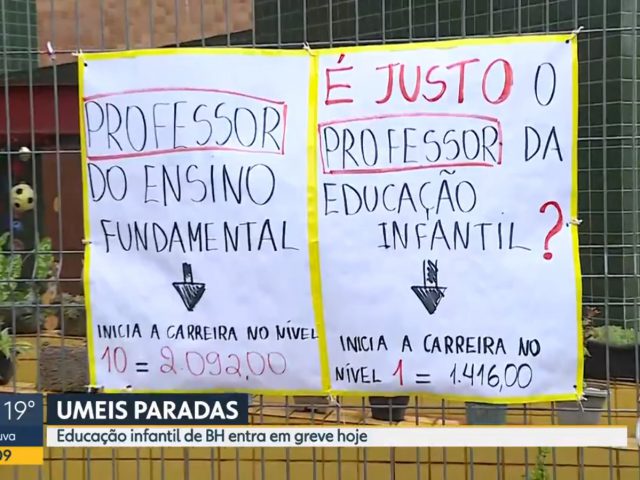 PROFESSOR
DO ENSINO
FUNDAMENTAL
INICIA A CARREIRA NO NÍVEL
10 = 2.092,00
É JUSTO O
PROFESSOR DA
EDUCAÇÃO
INFANTIL ?
INICIA A CARREIRA NO
NÍVEL 1 = 1.416,00
19°
UMEIS PARADAS
Educação infantil de BH entra em greve hoje